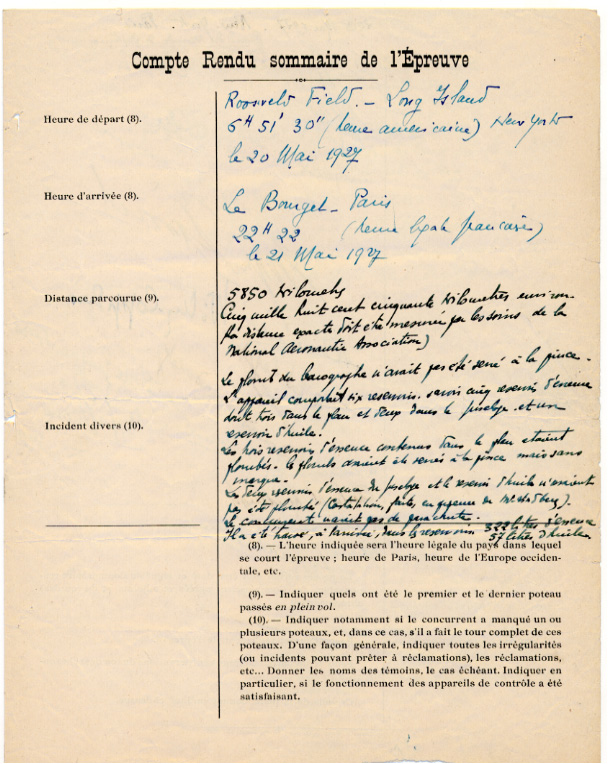 Compte Rendu sommaire de l'Épreuve
Heure de départ (8).
Roosveld Field. - Long Island
6H 51' 30" (heure américaine) New York
le 20 Mai 1927
Heure d'arrivée (8).
Le Bourget - Paris
22H 22 (heure légale française)
le 21 Mai 1927
Distance parcourue (9).
5850 Kilomets
Cinq mille huit cent cinquante Kilomètres environ
(la distance exacte doit être mesurée par les soins de la
National Aeronautic Association)
Incident divers (10).
Le plomb du barographe n'avait pas été serré à la pince.
L'appareil comportait six reservoirs. savoir cinq reservoirs d'essence
dont trois dans le plan et deux dans le fuselage. et un
reservoir d'huile.
Les trois reservoirs d'essence contenus dans le plan étaient
plombés. les plombs avaient été serrés à la pince mais sans
marque.
Les deux reservoirs d'essence du fuselage et le reservoir d'huile n'avaient
pas été plombés (Constatation faite en présence de Mr
Le concurrent n'avait pas de parachute.
Il a été trouvé, à l'arrivée, dans les reservoirs 322 litres d'essence
57 litres d'huile
(8). — L'heure indiquée sera l'heure légale du pays dans lequel
se court l'épreuve ; heure de Paris, heure de l'Europe occiden-
tale, etc.
(9). — Indiquer quels ont été le premier et le dernier poteau
passés en plein vol.
(10). — Indiquer notamment si le concurrent a manqué un ou
plusieurs poteaux, et, dans ce cas, s'il a fait le tour complet de ces
poteaux. D'une façon générale, indiquer toutes les irrégularités
(ou incidents pouvant prêter à réclamations), les réclamations,
etc... Donner les noms des témoins, le cas échéant. Indiquer en
particulier, si le fonctionnement des appareils de contrôle a été
satisfaisant.